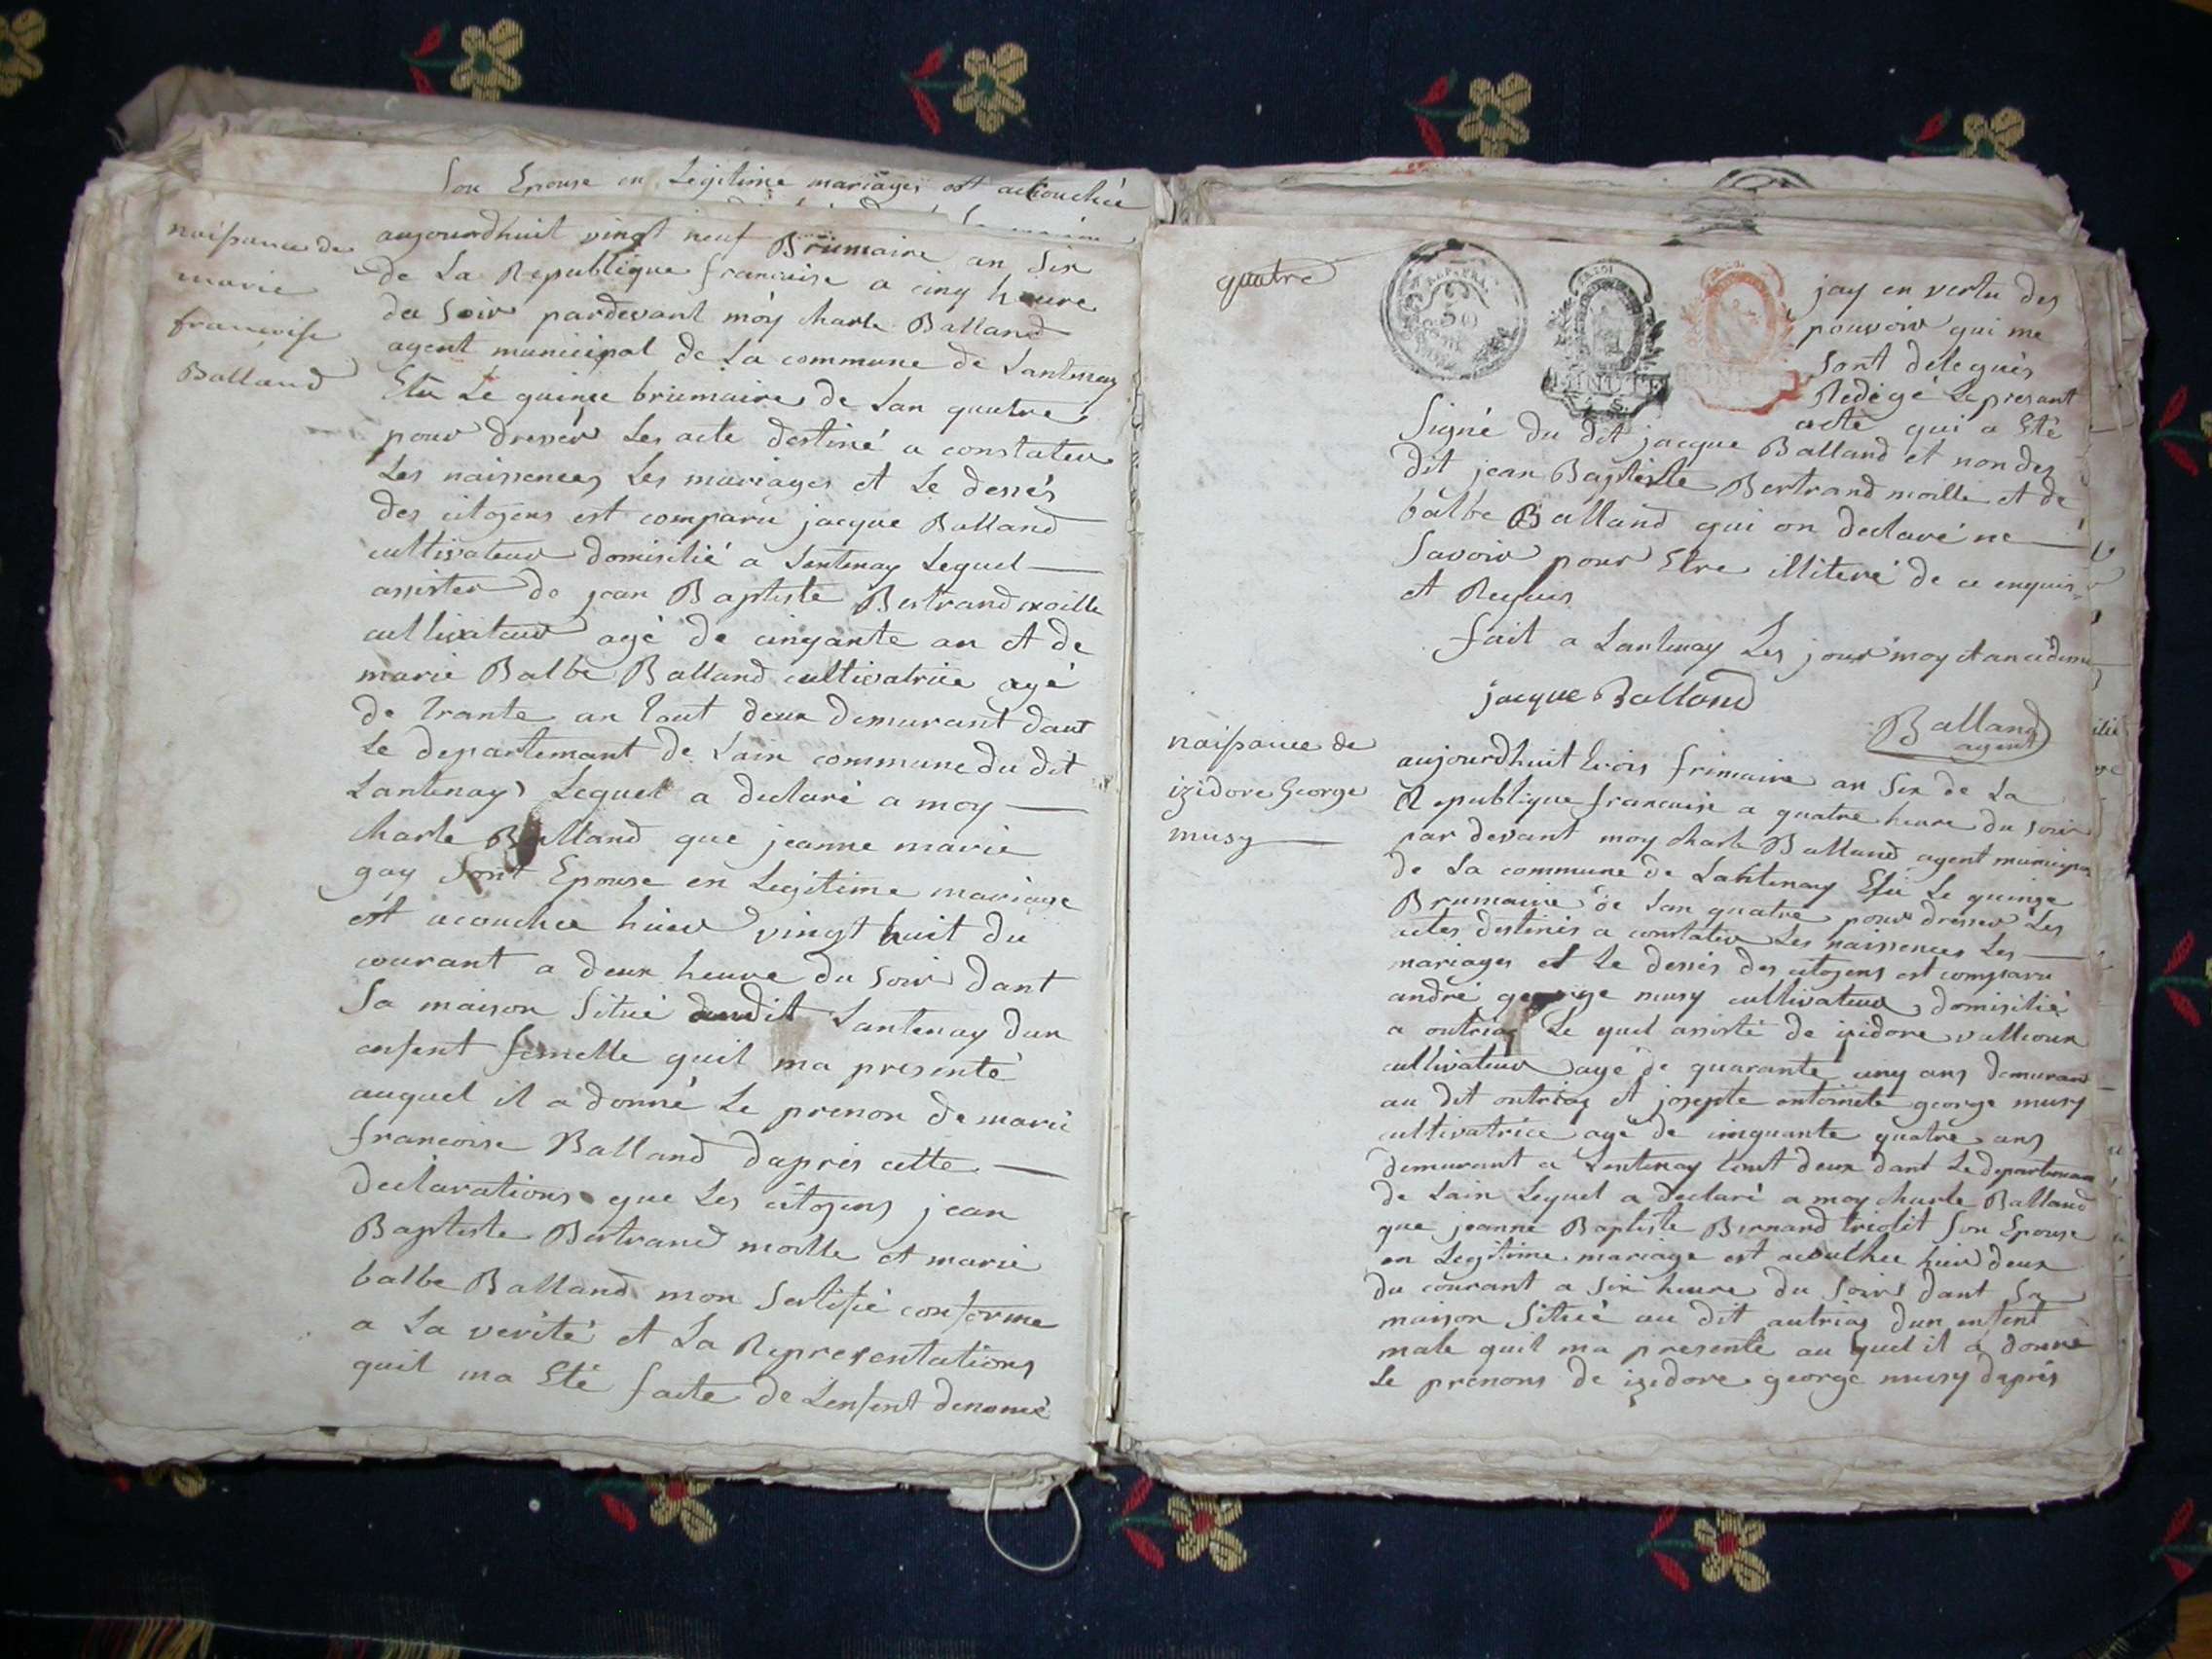 Son Epouse en Legitime mariages est accouchée
naissance de
marie
francoise
Balland
aujourdhuit vingt neuf Brumaire an Six
de La Republique francaise a cinq heure
du Soir pardevant moy charle Balland
agent municipal de La commune de Lantenay
Elu Le quinze brumaire de Lan quatre
pour dresser Les acte destiné a constater
Les naissences Les mariages et Le dessés
des citoyens est comparu jacque Balland
cultivateur domisilié a Lentenay Lequel
assister de jean Baptiste Bertrand moille
cultivateur agé de cinqante an et de
marie Balbe Balland cultivatrice agé
de trante an tout deux demurant dant
Le departemant de Lain commune du dit
Lantenay Lequel a declaré a moy
charle Balland que jeanne marie
gay Sont Epouse en Legitime mariage
est acouchee hier vingt huit du
courant a deux heure du Soir dant
Sa maison Situé audit Lantenay dun
enfent femelle quil ma presenté
auquel il a donné Le prenon de marie
francoise Balland dapres cette
declarations que Les citoyens jean
Baptiste Bertrand moille et marie
balbe Balland mon Sertifié conforme
a La verité et La Representations
quil ma Eté faite de Lenfent denomé
quatre
50
MINUTE
jay en vertu des
pouvoir qui me
Sont delegués
Redégé Le presant
acte qui a Eté
Signé du dit jacque Balland et non des
dit jean Baptiste Bertrand moille et de
balbe Balland qui on declaré ne
Savoir pour Etre illiteré de ce enquis
et Requis
fait a Lantenay Les jour moy et an cidessu
jacque Balland
Balland
agent
naissance de
izidore George
musy
aujourdhuit trois frimaire an Six de La
Republique francaise a quatre heure du soir
par devant moy charle Balland agent municipa
de La commune de Lantenay Elu Le quinze
Brumaire de Lan quatre pour dresser Les
actes destinés a constater Les naissences Les
mariages et Le dessés des citoyens est comparu
andré george musy cultivateur domisilié
a outriaz Le quel assisté de izidore
cultivateur agé de quarante cinq ans demurant
au dit outriaz et josepte entoinete george musy
cultivatrice agé de cinquante quatre ans
demurant a Lentenay tout deux dant Le departemant
de Lain Lequel a declaré a moy charle Balland
que jeanne Baptiste Bernard triolit Son Epouse
en Legitime mariage est acouchee hier deux
du courant a Six heure du Soir dant Sa
maison Situé au dit autriaz dun enfent
male quil ma presenté au quel il a donné
Le prenons de izidore george musy daprés